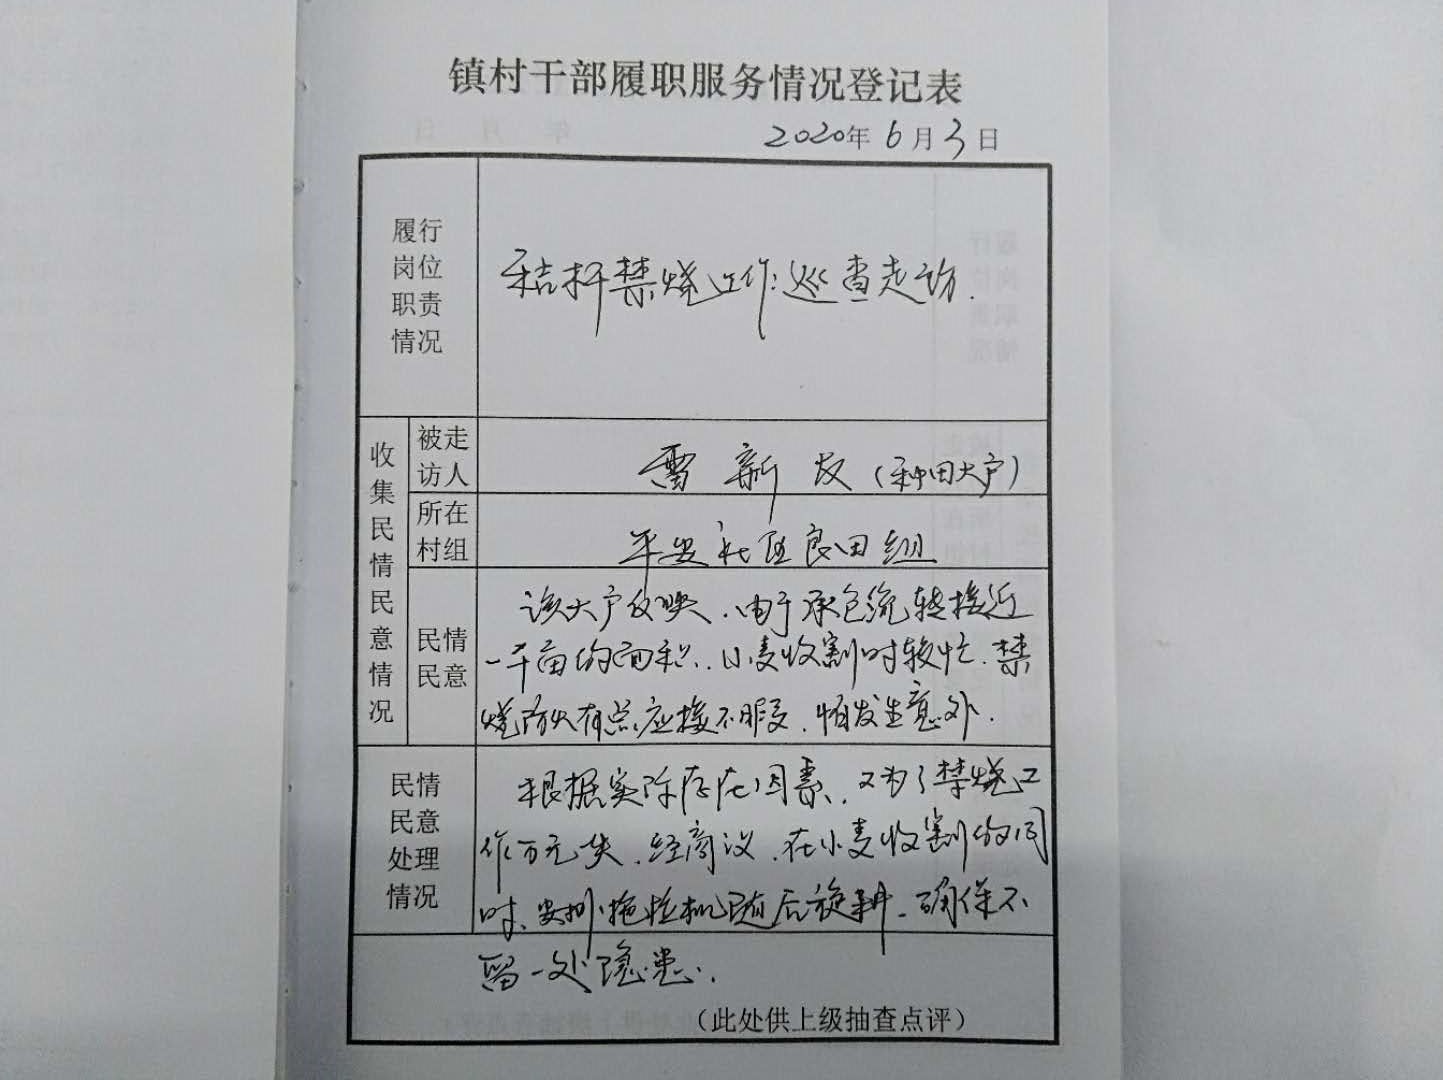 镇村干部履职服务情况登记表
2020年6月3日
履行
岗位
职责
情况
秸杆禁烧工作:巡查走访.
收集民情民意情况
被走
访人
雷新友(种田大户)
所在
村组
平安社区良田组
民情
民意
该大户反映,由于承包流转接近
一千亩的面积,小麦收割时较忙,禁
烧防火有点应接不暇,怕发生意外.
民情
民意
处理
情况
根据实际存在因素,又为了禁烧工
作万无失,经商议,在小麦收割的同
时,安排拖拉机随后旋耕,确保不
留一处隐患.
(此处供上级抽查点评)